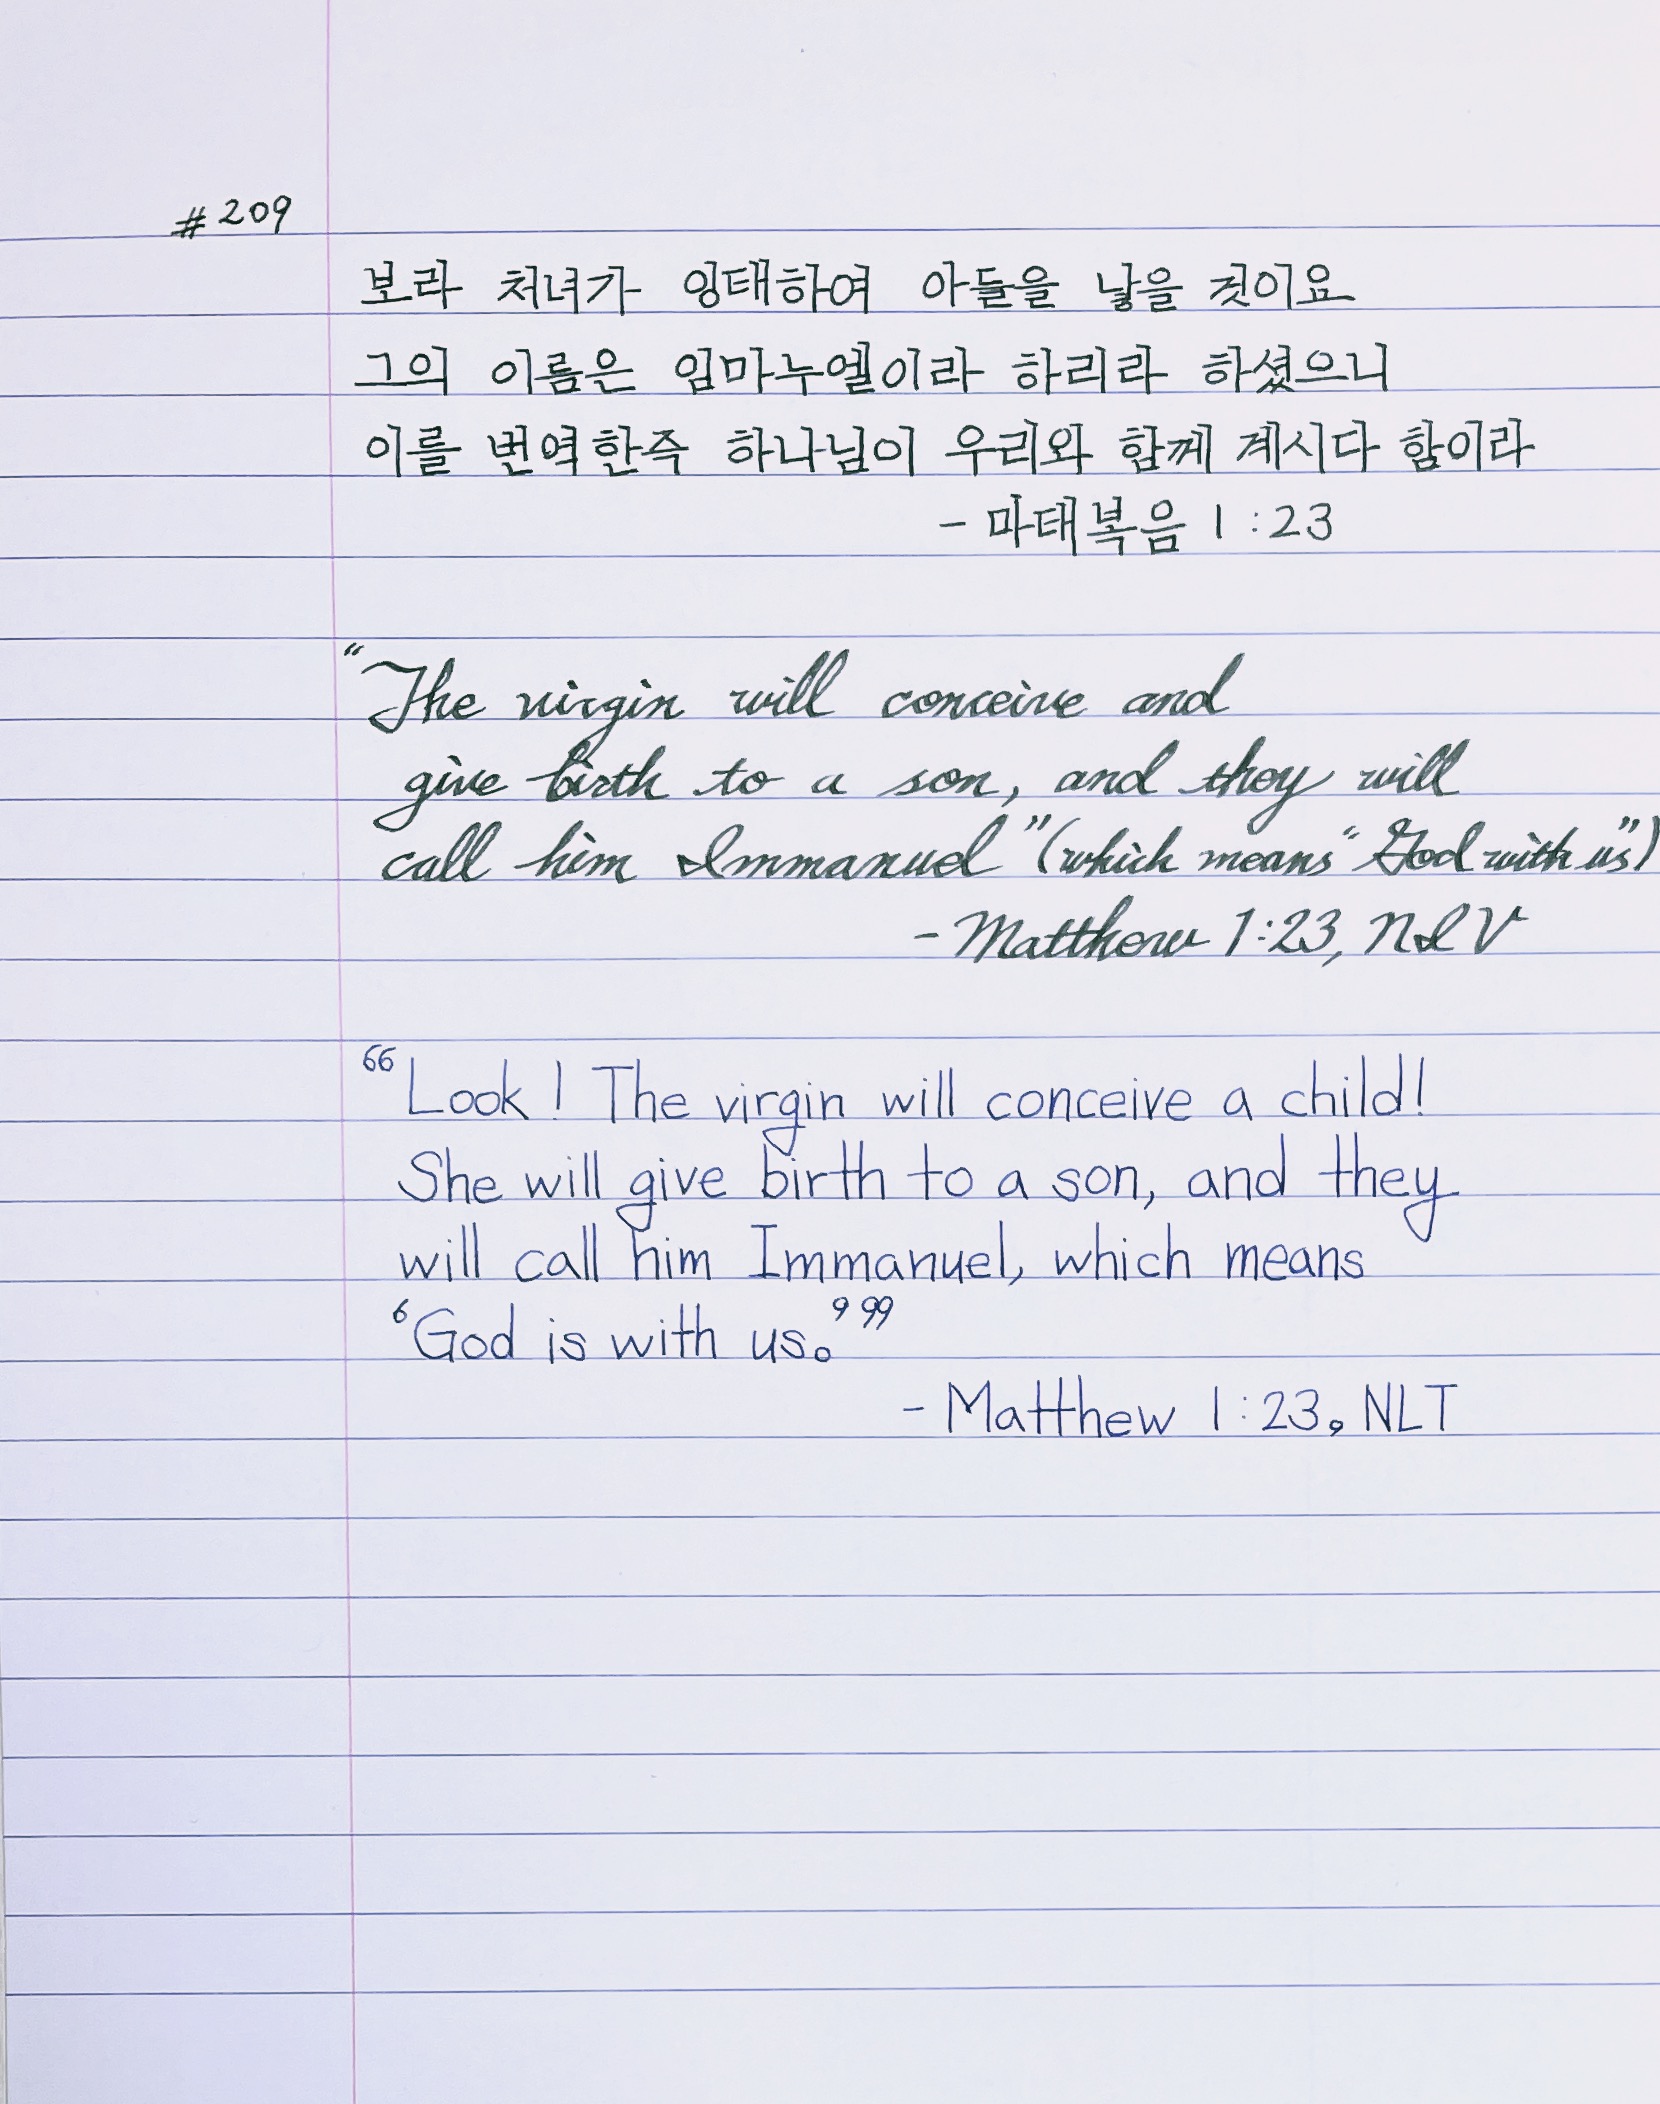 #209
보라 처녀가 잉태하여 아들을 낳을 것이요
그의 이름은 임마누엘이라 하리라 하셨으니
이를 번역한즉 하나님이 우리와 함께 계시다 함이라
- 마태복음 1:23
"The virgin will conceive and
give birth to a son, and they will
call him Immanuel" (which means "God with us")
- Matthew 1:23, NIV
"Look! The virgin will conceive a child!
She will give birth to a son, and they
will call him Immanuel, which means
'God is with us.'"
- Matthew 1:23, NLT